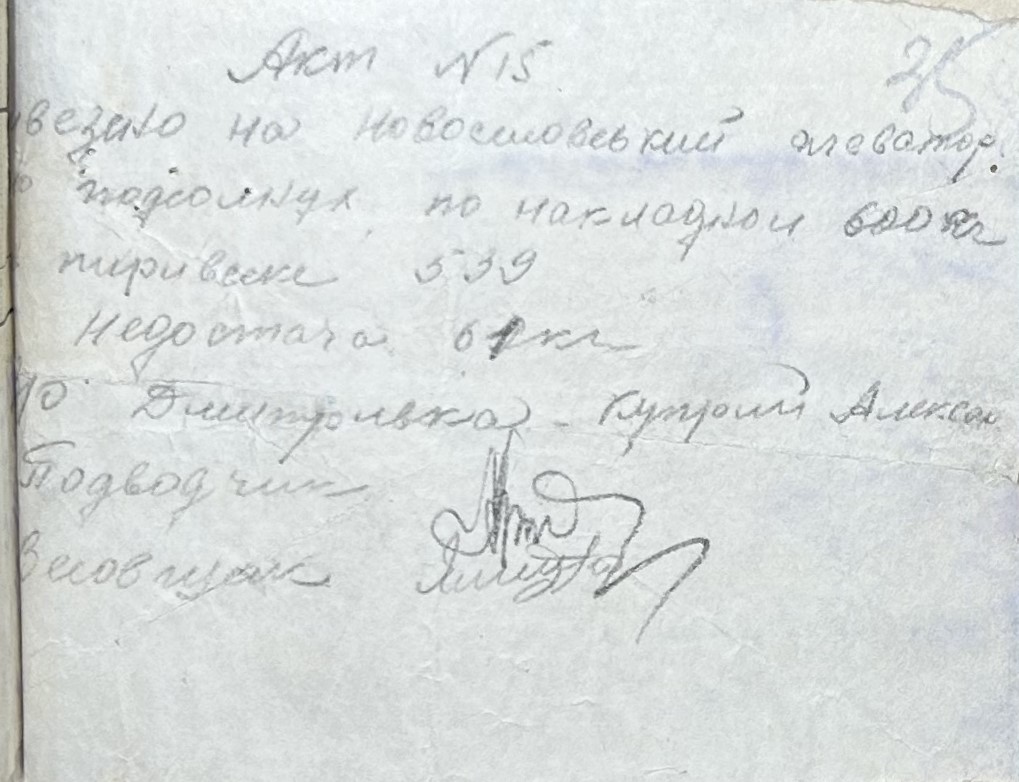 Акт N 15
25
везено на Новоселовський элеватор.
подсолнух по накладной 600 кг
перивеске 539
Недостача 61 кг
Дмитровка - Куприй Алексан
Подводчик
Весовщик